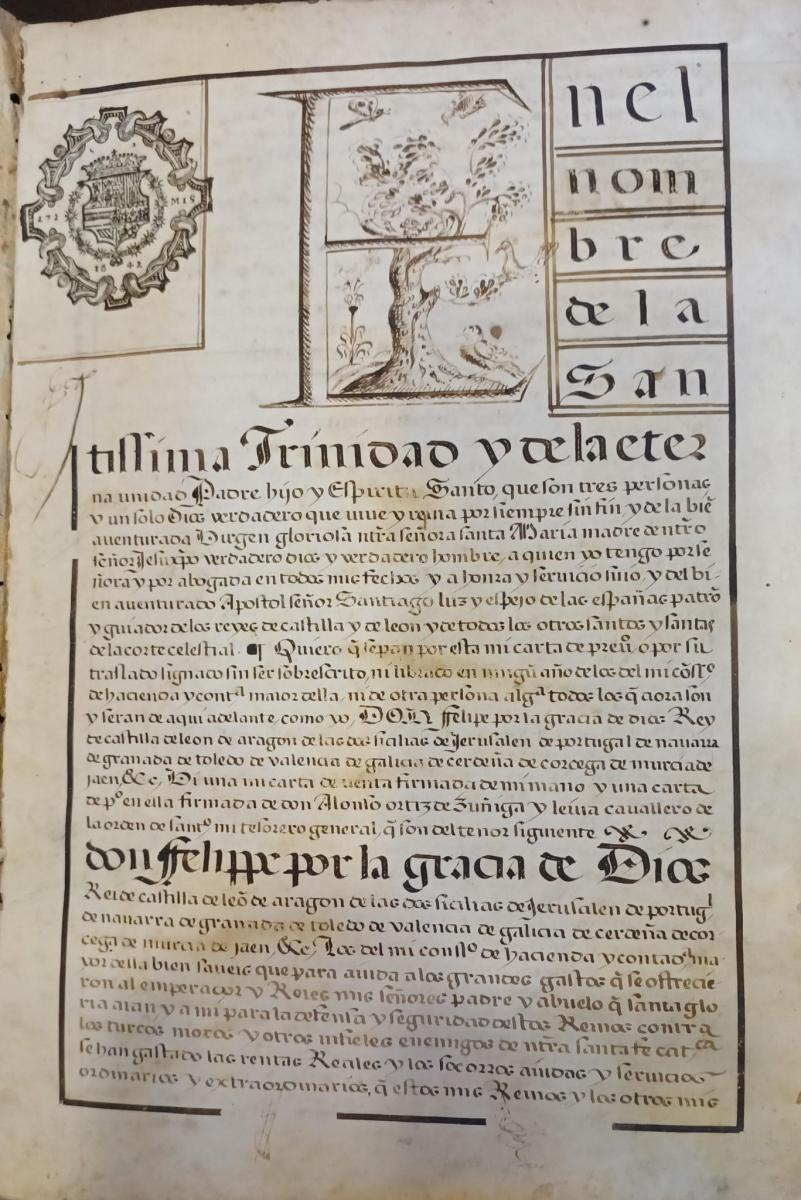 E nel
nom
bre
de la
San
tissima Trinidad y de la eter
na unidad Padre hijo y Espiritu Santo, que son tres personas
y un solo Dios verdadero que uiue y reyna por siempre sin fin y de la biẽ
auenturada Uirgen gloriosa ntra señora santa Maria madre de ntro
señor Jesuxpo verdadero dios y verdadero hombre, a quien yo tengo por se
ñora y por abogada en todos mis fechos y a honra y seruicio suio, y del bi-
en auenturado Apostol señor Santiago luz y espejo de las españas patrõ
y guiador de los reyes de castilla y de leon y de todos los otros santos y santas
de la corte celestial. Quiero q̃ sepan por esta mi carta de preuiº o por su
traslado signado sin ser sobrescrito, ni librado en ningũ año de los del mi cõsº
de hacienda y contª maior della, ni de otra persona algª todos los q̃ aora son
y seran de aqui adelante, como yo, DON ffelipe por la gracia de dios Rey
de castilla de leon de aragon de las dos sicilias de Jerusalen de portugal de nauarra
de granada de toledo de valencia de galicia de cerdeña de corcega de murcia de
jaen, &c, Di una mi carta de uenta firmada de mi mano y una carta
de pº en ella firmada de don Alonso ortiz de Zuñiga y leiua cauallero de
la orden de santº mi tesorero general, q̃ son del tenor siguiente
don ffelippe por la gracia de Dios
Rei de castilla de leõ de aragon de las dos sicilias de Jerusalen de portugˡ
de nauarra de granada de toledo de valencia de galicia de cerdeña de cor-
cega de murcia de jaen, &c, Los del mi consº de hacienda y contadª ma-
yor della bien saueis que para aiuda a los grandes gastos q̃ se ofrecie
ron al emperador y Reies mis señores padre y abuelo q̃ santa glo
ria aian y a mi para la defensa y seguridad destos Reinos contra
los turcos moros y otros infieles enemigos de ntra santa fe catᶜᵃ
se han gastado las rentas Reales y los socorros aiudas y seruicios
ordinarios y extraordinarios, q̃ estos mis Reinos y los otros mis
1642